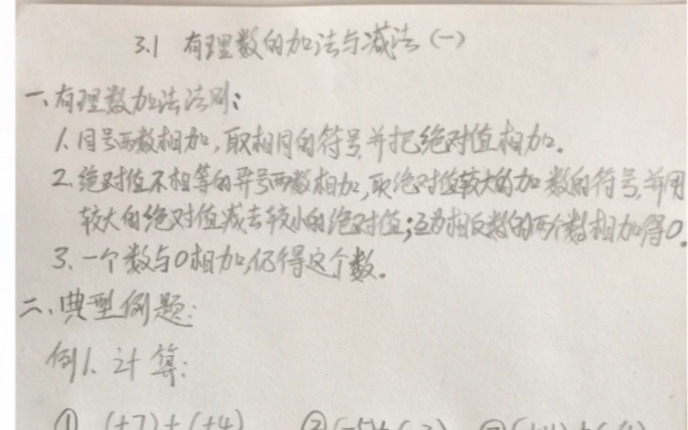 3.1 有理数的加法与减法(一)
一、有理数加法法则:
1、同号两数相加,取相同的符号,并把绝对值相加。
2、绝对值不相等的异号两数相加,取绝对值较大的加数的符号,并用
较大的绝对值减去较小的绝对值;互为相反数的两个数相加得0。
3、一个数与0相加,仍得这个数。
二、典型例题:
例1、计算:
① (+7)+(+4) ②(-5)+(